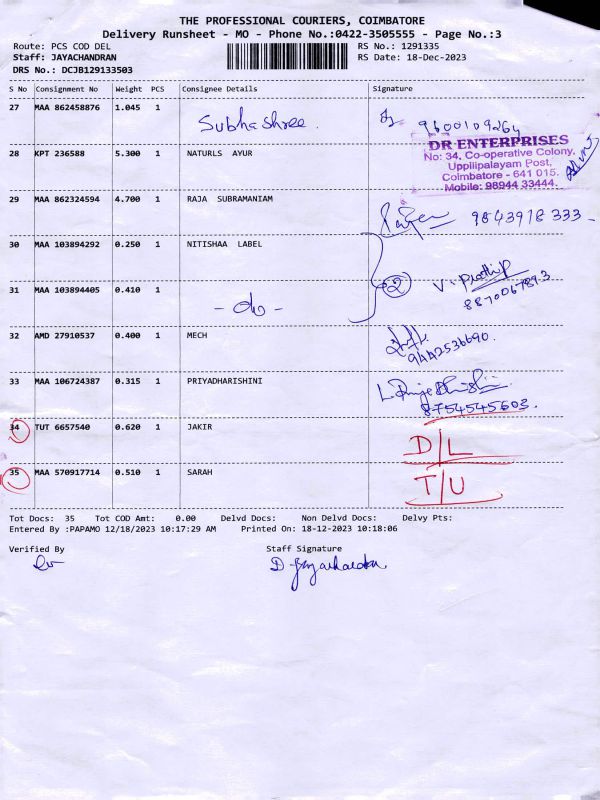 THE PROFESSIONAL COURIERS, COIMBATORE
Delivery Runsheet - MO - Phone No.:0422-3505555 - Page No.:3
Route: PCS COD DEL RS No.: 1291335
Staff: JAYACHANDRAN RS Date: 18-Dec-2023
DRS No.: DCJB129133503
S No Consignment No Weight PCS Consignee Details Signature
27 MAA 862458876 1.045 1 Subhashree. 9600109264
28 KPT 236588 5.300 1 NATURLS AYUR
DR ENTERPRISES
No: 34, Co-operative Colony,
Uppilipalayam Post,
Coimbatore - 641 015.
Mobile: 98944 33444.
29 MAA 862324594 4.700 1 RAJA SUBRAMANIAM 9843918 333
30 MAA 103894292 0.250 1 NITISHAA LABEL
2 V. Pradhip
31 MAA 103894405 0.410 1 - do - 8870067893
32 AMD 27910537 0.400 1 MECH
9442536690.
33 MAA 106724387 0.315 1 PRIYADHARISHINI
8754545603.
34 TUT 6657540 0.620 1 JAKIR D/L
35 MAA 570917714 0.510 1 SARAH T/U
Tot Docs: 35 Tot COD Amt: 0.00 Delvd Docs: Non Delvd Docs: Delvy Pts:
Entered By :PAPAMO 12/18/2023 10:17:29 AM Printed On: 18-12-2023 10:18:06
Verified By Staff Signature